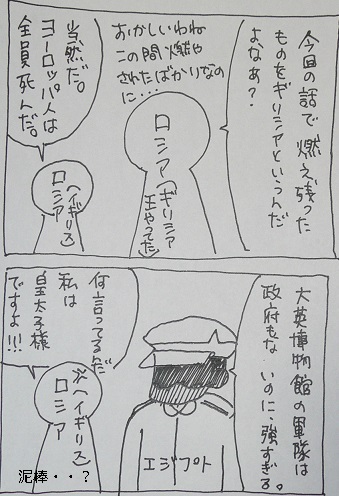 今回の話で燃え残った
ものをギリシアというんだ
よなあ?
おかしいわね
この間燃や
されたばかりなの
に・・・
ロシア(ギリシア
王やってた)
当然だ。
ヨーロッパ人は
全員死んだ。
ロシア
(ヘイギリス)
大英博物館の軍隊は
政府もな いのに、強すぎる。
エジプト
何言ってるだ
私は
皇太子様
ですよ!!!
ロシア
(ヘイギリス)
泥棒・・?